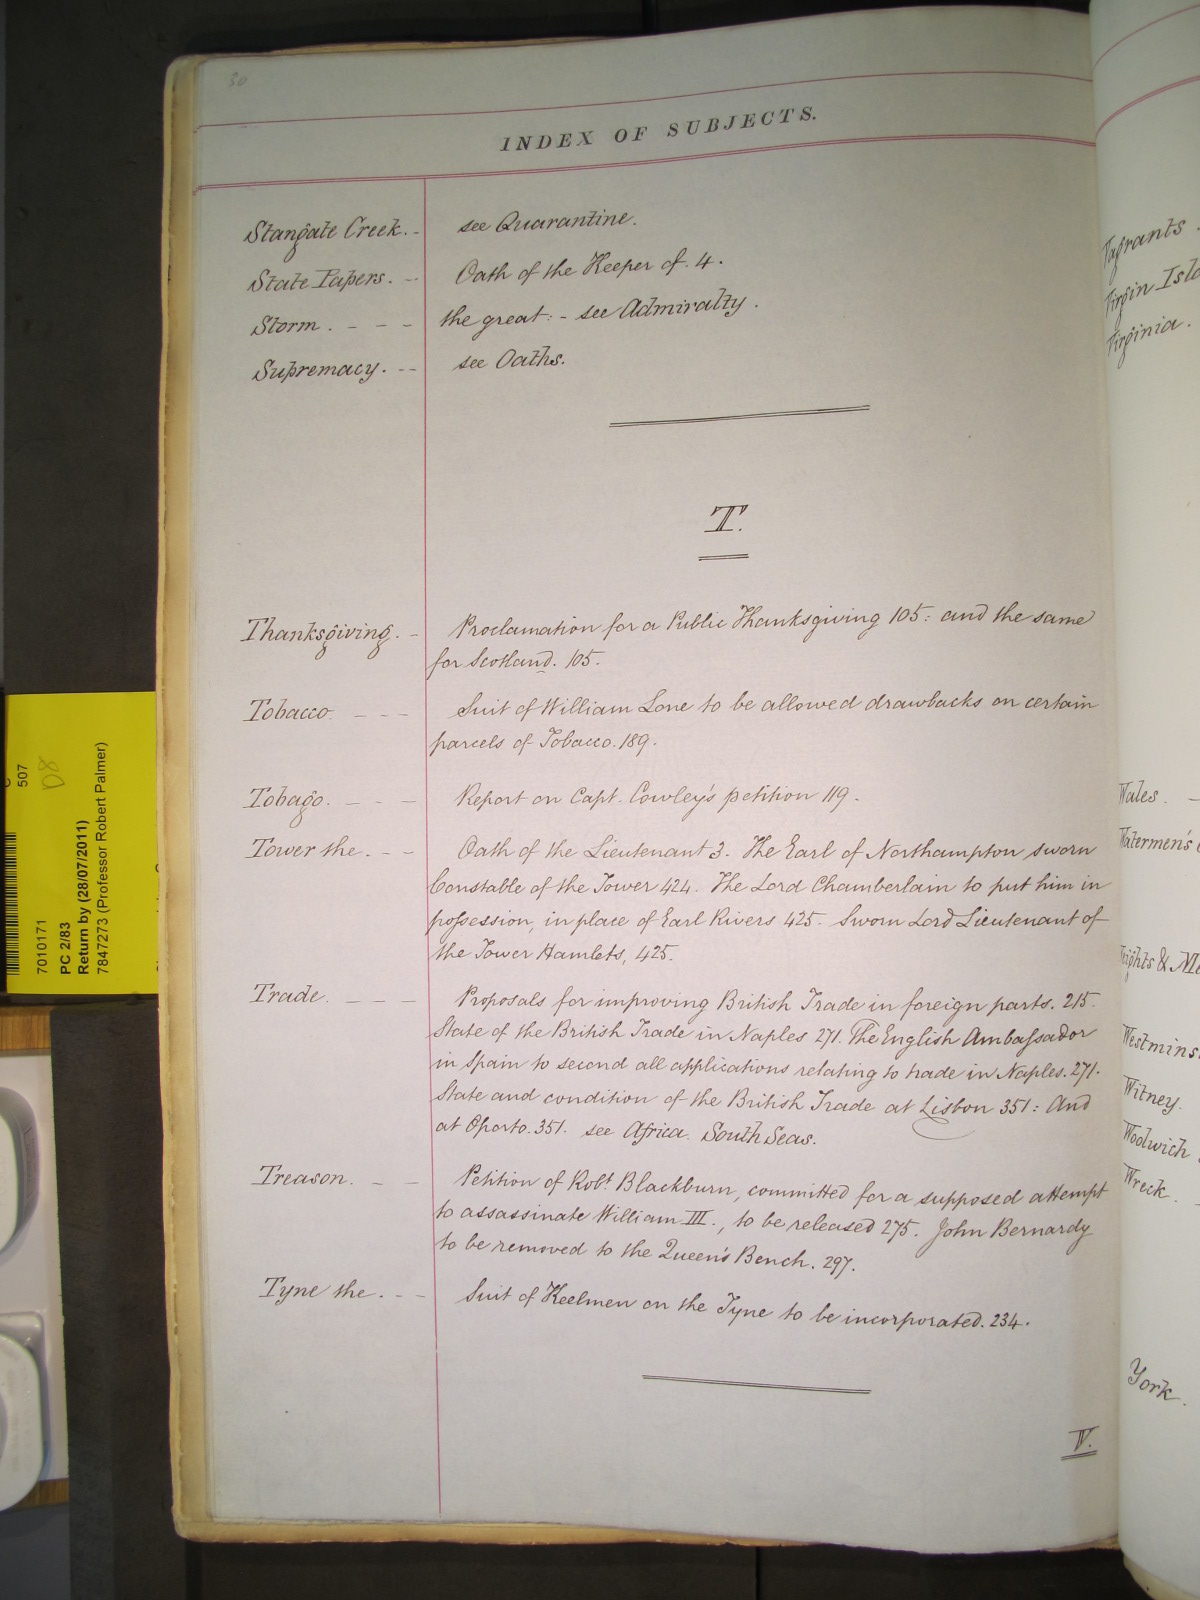 30
INDEX OF SUBJECTS.
Stangate Creek. - see Quarantine.
State Papers. -- Oath of the Keeper of. 4.
Storm. - - - the great: - see Admiralty.
Supremacy. -- see Oaths.
T.
Thanksgiving. - Proclamation for a Public Thanksgiving 105: and the same
for Scotland. 105.
Tobacco - - - Suit of William Lone to be allowed drawbacks on certain
parcels of Tobacco. 189.
Tobago. - - - Report on Capt. Cowley's petition 119.
Tower the. - - Oath of the Lieutenant 3. The Earl of Northampton sworn
Constable of the Tower 424. The Lord Chamberlain to put him in
possession, in place of Earl Rivers 425. Sworn Lord Lieutenant of
the Tower Hamlets, 425.
Trade. - - - Proposals for improving British Trade in foreign parts. 215.
State of the British Trade in Naples 271. The English Ambassador
in Spain to second all applications relating to trade in Naples. 271.
State and condition of the British Trade at Lisbon 351: And
at Oporto. 351. see Africa. South Seas.
Treason. - - Petition of Robt. Blackburn, committed for a supposed attempt
to assassinate William III., to be released 275. John Bernardy
to be removed to the Queen's Bench. 297.
Tyne the. - - Suit of Keelmen on the Tyne to be incorporated. 234.
V.
Virginia.
Wales. -
Witney.
Woolwich
Wreck.
York.
507
D8
7010171
PC 2/83
Return by (28/07/2011)
7847273 (Professor Robert Palmer)